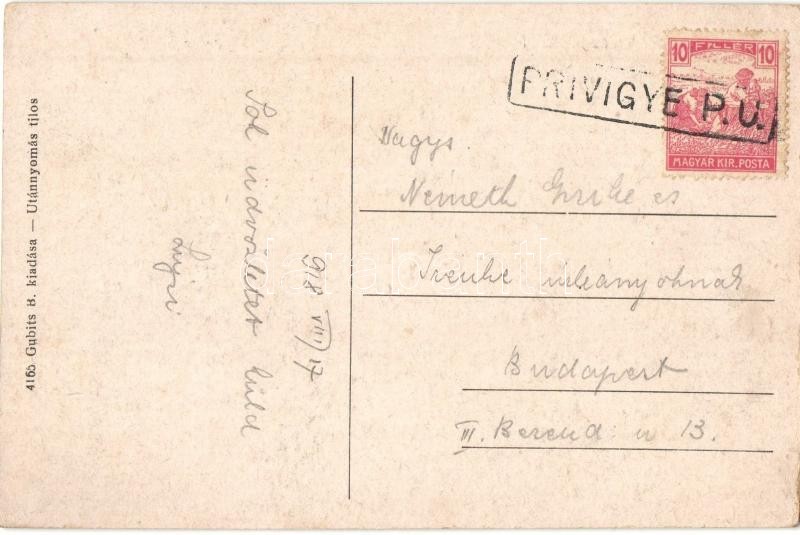 4165 Gubits B. kiadása — Utánnyomás tilos
Sok üdvözletet küld
918 VIII/17
10 FILLÉR 10
MAGYAR KIR. POSTA
PRIVIGYE P.U.
Nagys.
Németh Gizike és
Irenke urleányoknak
Budapest
III. Berend u 13.